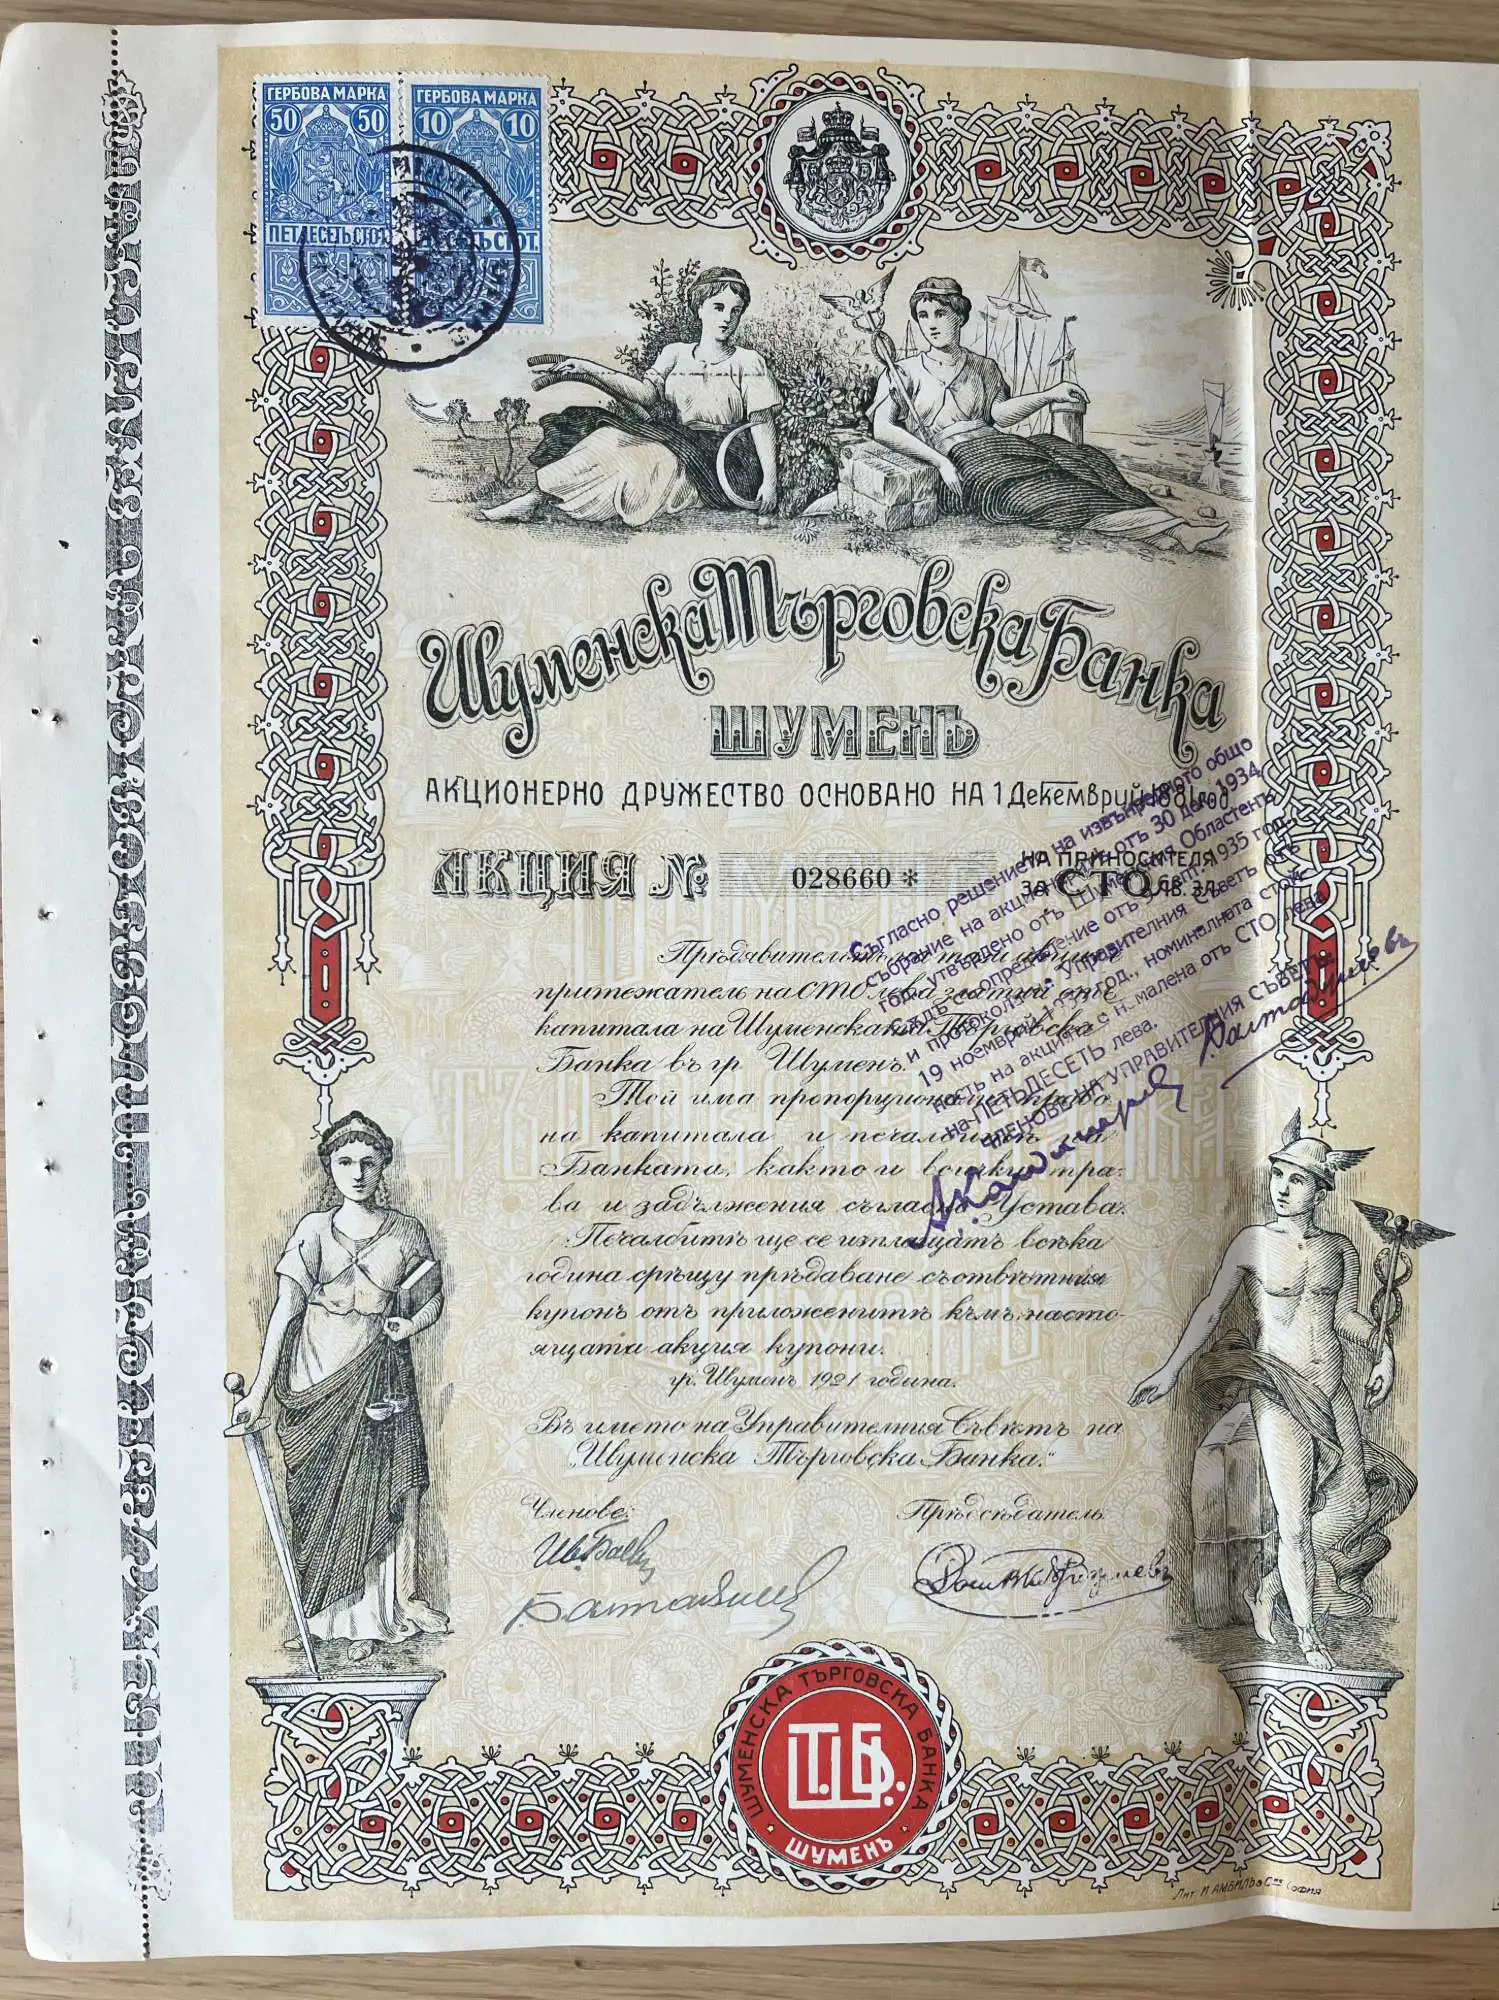 ГЕРБОВА МАРКА ГЕРБОВА МАРКА
50 50 10 10
ПЕТДЕСЕТЬ СТОТ. ДЕСЕТЬ СТОТ.
Шуменска Търговска Банка
ШУМЕНЪ
АКЦИОНЕРНО ДРУЖЕСТВО ОСНОВАНО НА 1 Декемврий год.
АКЦИЯ №: 028660 * НА ПРИНОСИТЕЛЯ
ЗА СТО ЛВ. ЗЛ.
Прѣдявительтъ на тази акция е
притежатель на СТО лева златни отъ
капитала на Шуменската Търговска
Банка въ гр. Шуменъ.
Той има пропорционално право
на капитала и печалбитѣ на
Банката, както и всички пра-
ва и задължения съгласно Устава.
Печалбитѣ ще се изплащатъ всѣка
година срѣщу прѣдаване съотвѣтния
купонъ отъ приложенитѣ къмъ насто-
ящата акция купони.
гр. Шуменъ 1921 година.
Въ името на Управителния Съвѣтъ на
„Шуменска Търговска Банка."
Членове: Прѣдсѣдатель:
Съгласно решението на извънредното общо
събрание на акционерите отъ 30 дек. 1934
год., утвърдено отъ Шуменския Областенъ
Сждъ съ опредѣление отъ 1935 год.
и протоколъ на Управителния Съветъ отъ
19 ноемврий год., номиналната стой-
ность на акциите се намалена отъ СТО лева
на ПЕТЬДЕСЕТЬ лева.
ЧЛЕНОВЕ НА УПРАВИТЕЛНИЯ СЪВЕТЪ:
ШУМЕНСКА ТЪРГОВСКА БАНКА
Ш.Т.Б.
ШУМЕНЪ
Лит. И. АМБИЛЪ & С-ие СОФИЯ